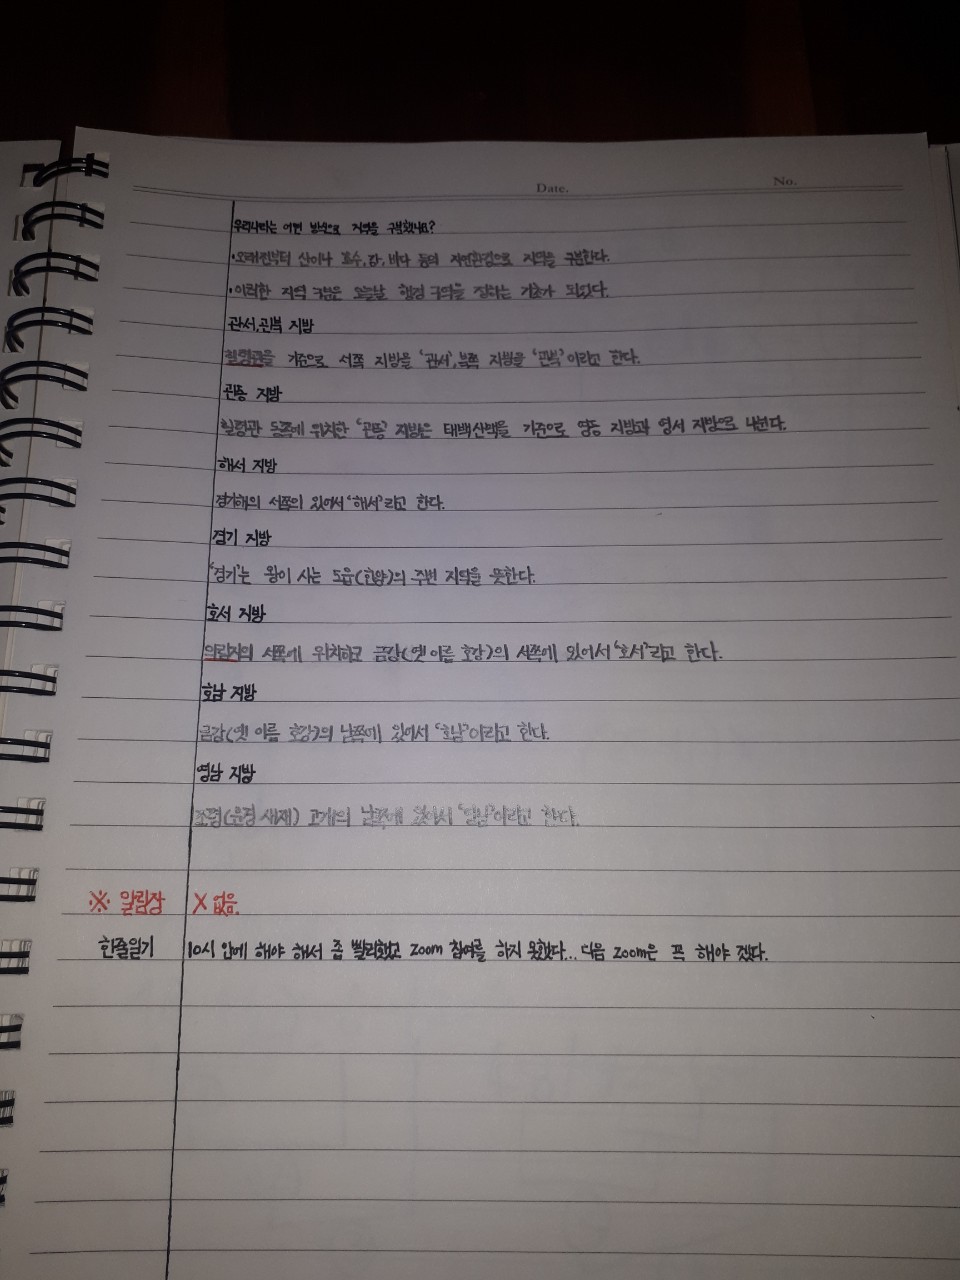 Date. No.
우리나라는 어떤 방식으로 지역을 구분했나요?
·오래전부터 산이나 호수, 강, 바다 등의 자연환경으로 지역을 구분한다.
·이러한 지역 구분은 오늘날 행정 구역을 정하는 기초가 되었다.
관서, 관북 지방
철령관을 기준으로 서쪽 지방을 '관서', 북쪽 지방을 '관북'이라고 한다.
관동 지방
철령관 동쪽에 위치한 '관동' 지방은 태백산맥을 기준으로 영동 지방과 영서 지방으로 나뉜다.
해서 지방
경기해의 서쪽의 있어서 '해서'라고 한다.
경기 지방
'경기'는 왕이 사는 도읍(한양)의 주변 지역을 뜻한다.
호서 지방
의림지의 서쪽에 위치하고 금강(옛 이름 호강)의 서쪽에 있어서 '호서'라고 한다.
호남 지방
금강(옛 이름 호강)의 남쪽에 있어서 '호남'이라고 한다.
영남 지방
조령(문경 새재) 고개의 남쪽에 있어서 '영남'이라고 한다.
※ 알림장 X 없음.
한줄일기 10시 안에 해야 해서 좀 빨리했고 zoom 참여를 하지 못했다... 다음 zoom은 꼭 해야 겠다.